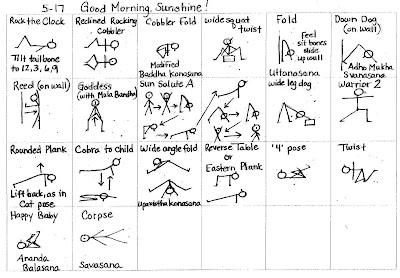 5-17 Good Morning, Sunshine!
Rock the Clock
Tilt tailbone
to 12, 3, 6, 9
Reclined Rocking
Cobbler
Cobbler Fold
Modified
Baddha Konasana
wide squat
&
twist
Fold
Feel
sit bones
slide
up wall
Uttanasana
Down Dog
(on wall)
Adho Mukha
Svanasana
Reed (on wall)
Goddess
(with Mula Bandha)
Sun Salute A
wide leg dog
Warrior 2
Rounded Plank
Lift back, as in
Cat pose
Cobra to Child
Wide angle fold
Upavistha Konasana
Reverse Table
or
Eastern Plank
'4' pose
Twist
Happy Baby
Ananda
Balasana
Corpse
Savasana